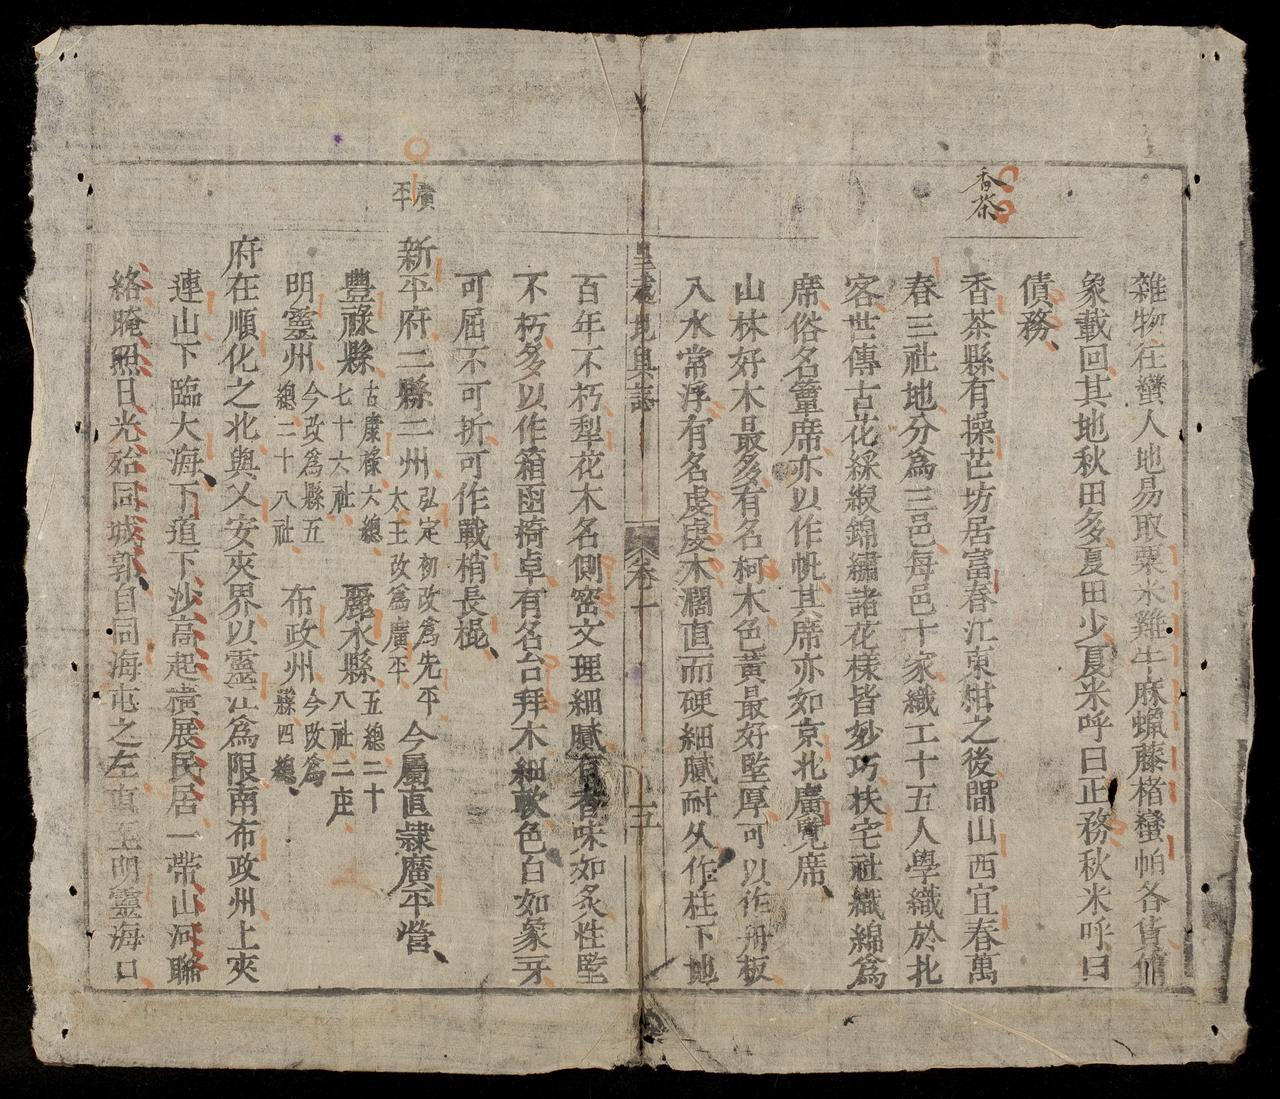 香茶
雜物往蠻人地易取粟米雞牛麻蠟藤楮蠻帕各貨備
象載回其地秋田多夏田少夏米呼曰正務秋米呼曰
債務
香茶縣有操芒坊居富春江東紺之後間山西宜春萬
春三社地分為三邑每邑十家織工十五人學織於北
客世傳古花綵緞錦繡諸花樣皆妙巧扶宅社織綿為
席俗名簟席亦以作帆其席亦如京北廣覽席
山林好木最多有名柯木色黃最好堅厚可以作舟板
入水常浮有名虔虔木濶直而硬細膩耐久作柱下地
卷一
五
百年不朽犁花木名側窓文理細膩有香味如炙性堅
不朽多以作箱函椅卓有名台拜木細軟色白如象牙
可屈不可折可作戰梢長棍
廣平
新平府二縣二州弘定初改為先平太王改為廣平今屬直隸廣平營
豐祿縣古康祿六總七十六社麗水縣五總二十八社二庄
明靈州今改為縣五總二十八社布政州今改為縣四總
府在順化之北與乂安夾界以靈江為限南布政州上夾
連山下臨大海下道下沙高起橫展民居一帶山河聯
絡晻照日光殆同城郭自同海屯之左直至明靈海口